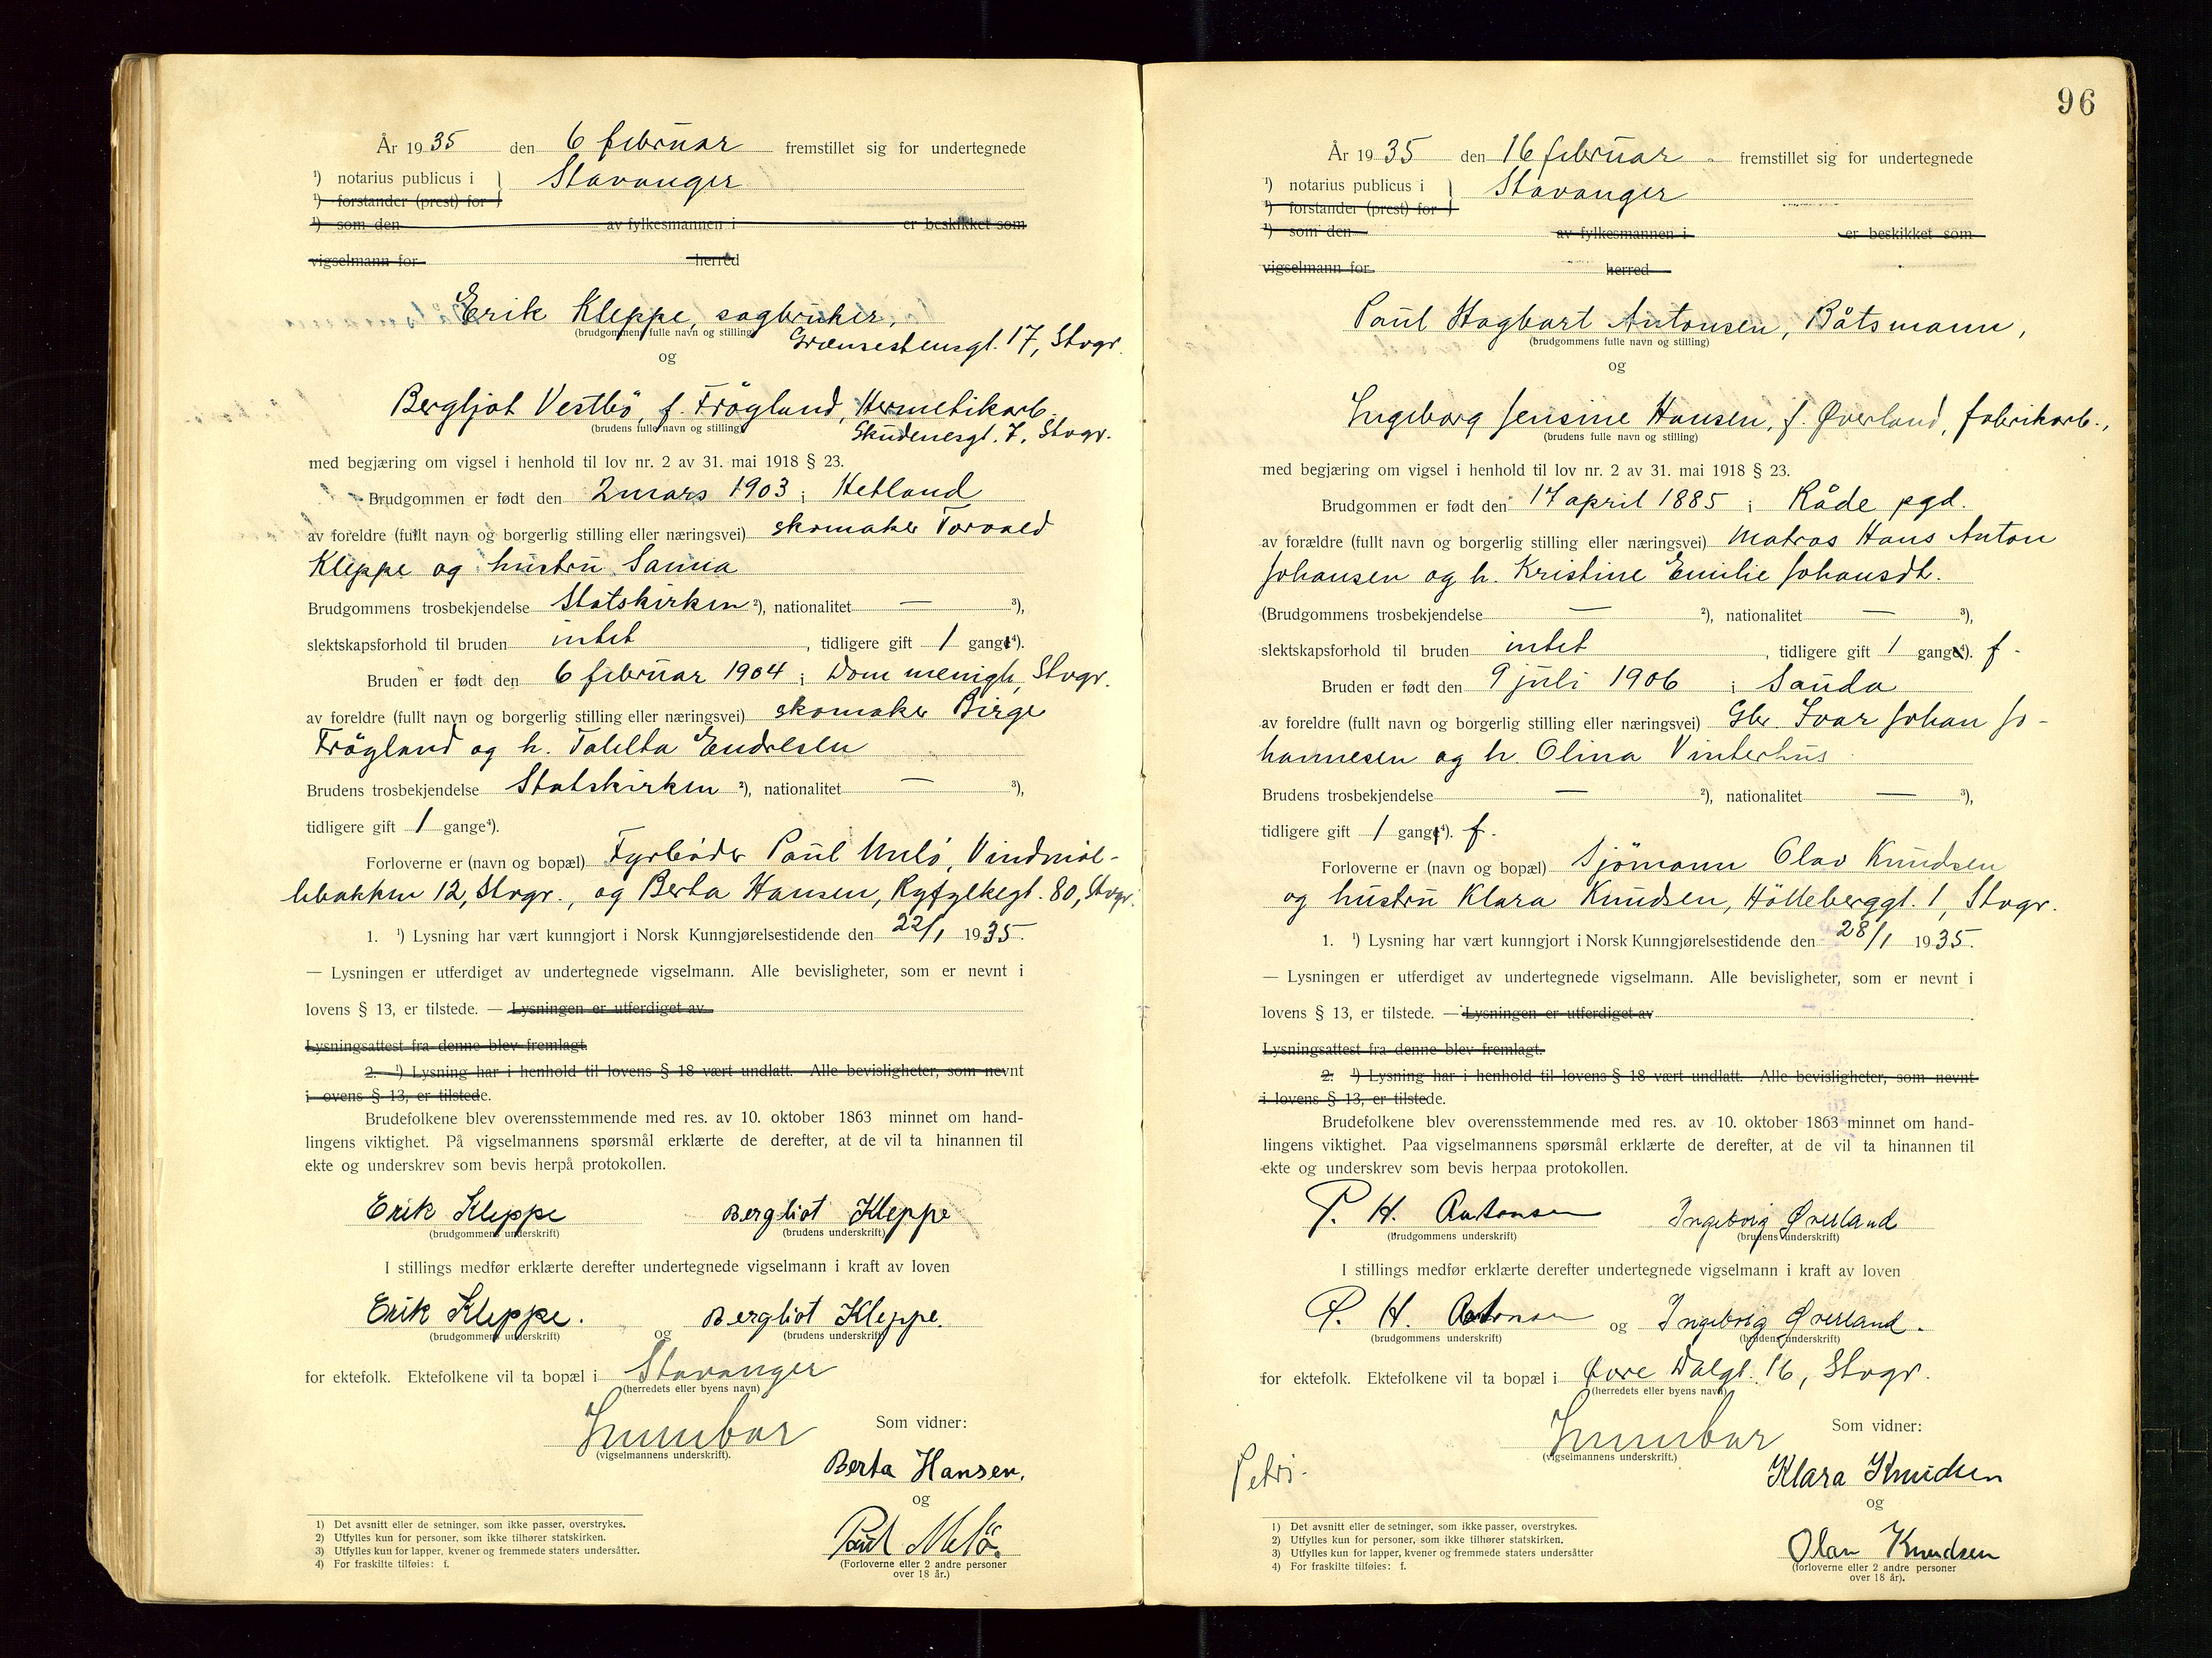 År 1935 den 6 februar fremstillet sig for undertegnede
¹) notarius publicus i } Stavanger
¹) forstander (prest) for
¹) som den av fylkesmannen i er beskikket som
vigselmann for herred
Erik Kleppe, sagbruker,
(brudgommens fulle navn og stilling) Grænsestensgt. 17, Stvgr.
og
Bergljot Vestbö, f. Frögland, Hermetikarb.
(brudens fulle navn og stilling) Skudenesgt. 7, Stvgr.
med begjæring om vigsel i henhold til lov nr. 2 av 31. mai 1918 § 23.
Brudgommen er født den 2 mars 1903 i Hetland
av foreldre (fullt navn og borgerlig stilling eller næringsvei) skomaker Torvald
Kleppe og hustru Sanna
Brudgommens trosbekjendelse Statskirken ²), nationalitet — ³),
slektskapsforhold til bruden intet , tidligere gift 1 gang⁴).
Bruden er født den 6 februar 1904 i Dom menigh, Stvgr.
av foreldre (fullt navn og borgerlig stilling eller næringsvei) skomaker Birge
Frögland og h. Tahlta Endresen
Brudens trosbekjendelse Statskirken ²), nationalitet — ³),
tidligere gift 1 gange⁴).
Forloverne er (navn og bopæl) Fyrböder Paul Melö, Vindmöl-
lebakken 12, Stvgr., og Berta Hansen, Ryfylkegt. 80, Stvgr.
1. ¹) Lysning har vært kunngjort i Norsk Kunngjørelsestidende den 22/1 1935.
— Lysningen er utferdiget av undertegnede vigselmann. Alle bevisligheter, som er nevnt i
lovens § 13, er tilstede. — Lysningen er utferdiget av
Lysningsattest fra denne blev fremlagt.
2. ¹) Lysning har i henhold til lovens § 18 vært undlatt. Alle bevisligheter, som nevnt
i ovens § 13, er tilstede.
Brudefolkene blev overensstemmende med res. av 10. oktober 1863 minnet om hand-
lingens viktighet. På vigselmannens spørsmål erklærte de derefter, at de vil ta hinannen til
ekte og underskrev som bevis herpå protokollen.
Erik Kleppe Bergliot Kleppe
(brudgommens underskrift) (brudens underskrift)
I stillings medfør erklærte derefter undertegnede vigselmann i kraft av loven
Erik Kleppe. og Bergliot Kleppe.
(brudgommens underskrift) (brudens underskrift)
for ektefolk. Ektefolkene vil ta bopæl i Stavanger
(herredets eller byens navn)
Som vidner:
(vigselmannens underskrift).
Berta Hansen.
og
Paul Melö.
(Forloverne eller 2 andre personer
over 18 år.)
1) Det avsnitt eller de setninger, som ikke passer, overstrykes.
2) Utfylles kun for personer, som ikke tilhører statskirken.
3) Utfylles kun for lapper, kvener og fremmede staters undersåtter.
4) For fraskilte tilføies: f.
96
År 1935 den 16 februar fremstillet sig for undertegnede
¹) notarius publicus i } Stavanger
¹) forstander (prest) for
¹) som den av fylkesmannen i er beskikket som
vigselmann for herred
Paul Hagbart Antonsen, Båtsmann,
(brudgommens fulle navn og stilling)
og
Ingeborg Jensine Hansen, f. Øverland, fabrikarb.,
(brudens fulle navn og stilling)
med begjæring om vigsel i henhold til lov nr. 2 av 31. mai 1918 § 23.
Brudgommen er født den 17 april 1885 i Råde pgd.
av forældre (fullt navn og borgerlig stilling eller næringsvei) Matros Hans Anton
Johansen og h. Kristine Emilie Johansdt.
(Brudgommens trosbekjendelse — ²), nationalitet — ³),
slektskapsforhold til bruden intet , tidligere gift 1 gang⁴). f.
Bruden er født den 9 juli 1906 i Sauda
av foreldre (fullt navn og borgerlig stilling eller næringsvei) Gbr. Ivar Johan Jo-
hannesen og h. Olina Vinterhus
Brudens trosbekjendelse — ²), nationalitet — ³),
tidligere gift 1 gang⁴). f.
Forloverne er (navn og bopæl) Sjömann Olav Knudsen
og hustru Klara Knudsen, Hölleberggt. 1, Stvgr.
1. ¹) Lysning har vært kunngjort i Norsk Kunngjørelsestidende den 28/1 1935.
— Lysningen er utferdiget av undertegnede vigselmann. Alle bevisligheter, som er nevnt i
lovens § 13, er tilstede. — Lysningen er utferdiget av
Lysningsattest fra denne blev fremlagt.
2. ¹) Lysning har i henhold til lovens § 18 vært undlatt. Alle bevisligheter, som nevnt
i lovens § 13, er tilstede.
Brudefolkene blev overensstemmende med res. av 10. oktober 1863 minnet om hand-
lingens viktighet. Paa vigselmannens spørsmål erklærte de derefter, at de vil ta hinannen til
ekte og underskrev som bevis herpaa protokollen.
P. H. Antonsen Ingeborg Øverland
(brudgommens underskrift) (brudens underskrift)
I stillings medfør erklærte derefter undertegnede vigselmann i kraft av loven
P. H. Antonsen og Ingeborg Øverland.
(brudgommens underskrift) (brudens underskrift)
for ektefolk. Ektefolkene vil ta bopæl i Øvre Dalgt. 16, Stvgr.
(herredets eller byens navn)
Som vidner:
(vigselmannens underskrift.)
Petri.
Klara Knudsen
og
Olav Knudsen
(forloverne eller 2 andre personer
over 18 år).
1) Det avsnitt eller de setninger, som ikke passer, overstrykes.
2) Utfylles kun for personer, som ikke tilhører statskirken.
3) Utfylles kun for lapper, kvener og fremmede staters undersåtter
4) For fraskilte tilføies: f.